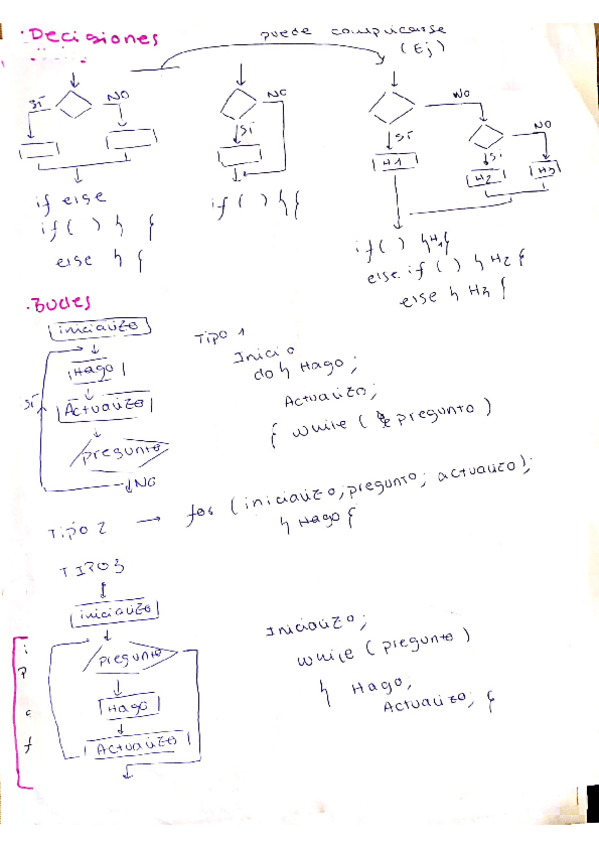 · Decisiones
puede complicarse
(Ej)
SI NO
NO
SI
NO
SI
NO
SI
H1
H2
H3
if else
if ( ) { }
else { }
if ( ) { }
if ( ) { H1 }
else if ( ) { H2 }
else { H3 }
· Bucles
inicializo
Hago
Actualizo
SI
pregunto
NO
Tipo 1
Inicio
do { Hago;
Actualizo;
} while ( pregunto )
Tipo 2 → for ( inicializo; pregunto; actualizo);
{ Hago }
TIPO 3
inicializo
pregunto
Hago
Actualizo
i
P
a
f
Inicializo;
while ( pregunto )
{ Hago;
Actualizo; }